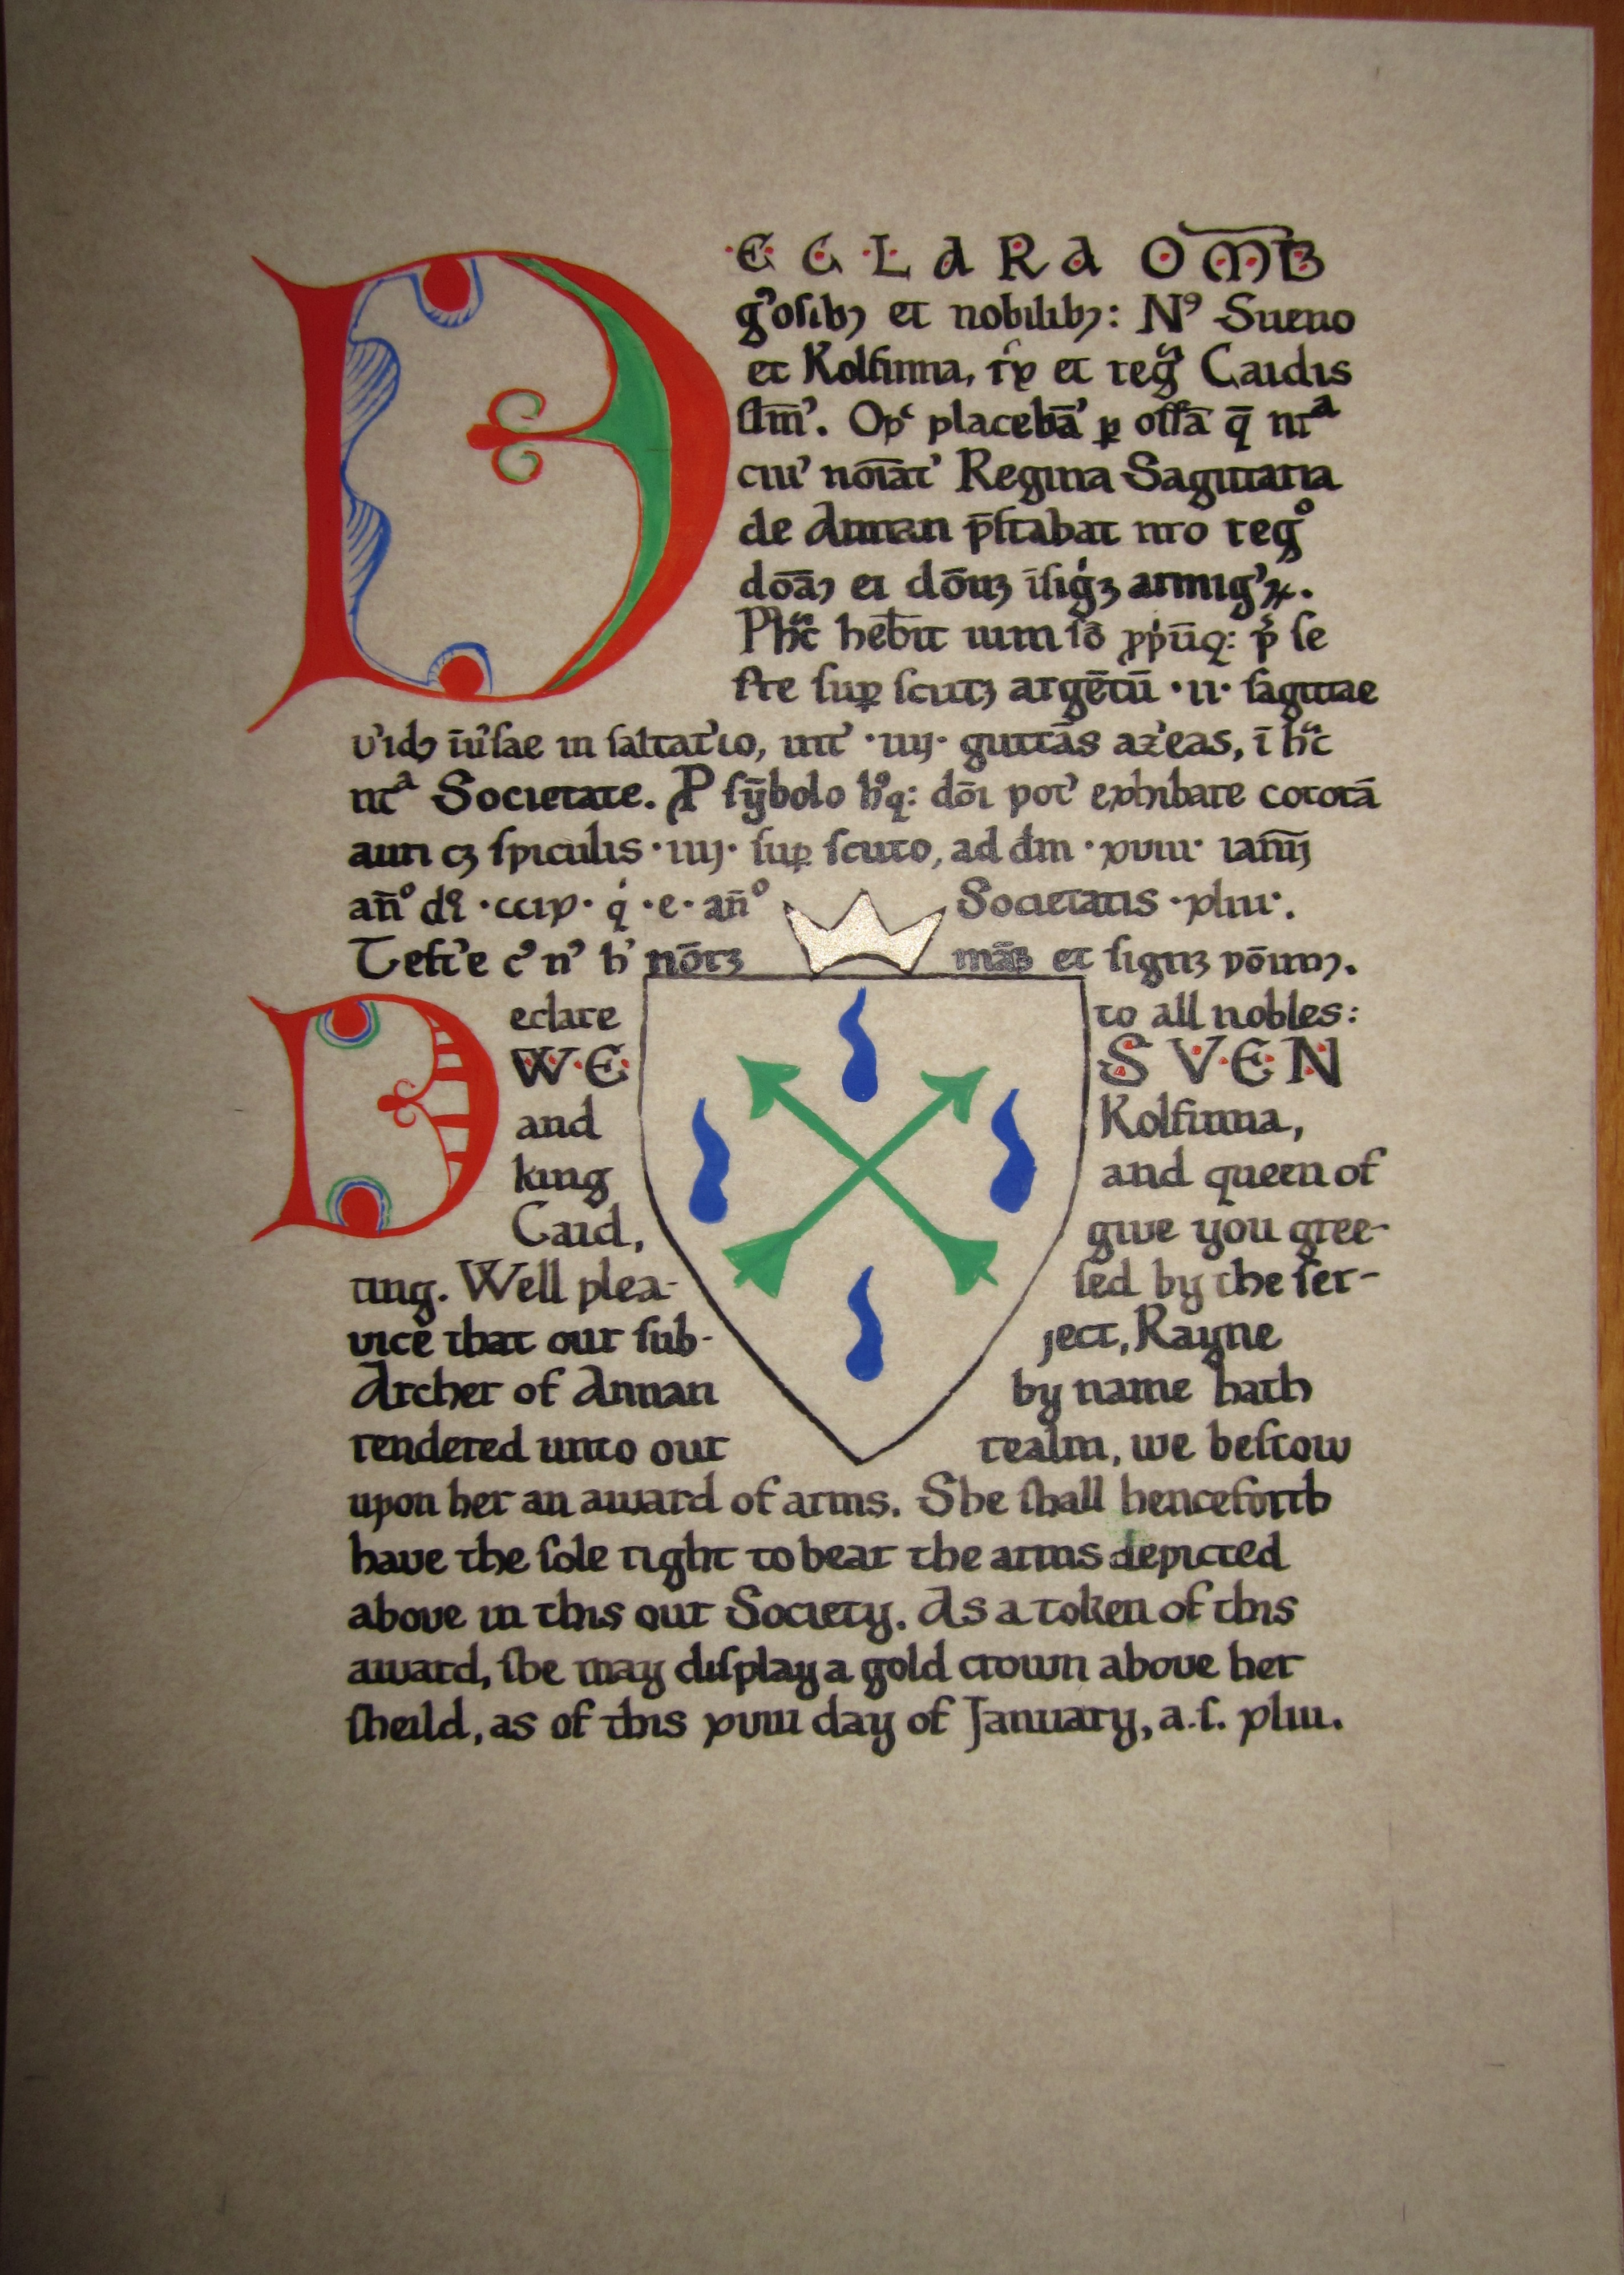 DECLARA OMB
g'oſibꝫ et nobilibꝫ: Nꝰ Sueno
et Kolfinna, et regͣ Caidis
Opͨ placebā' ꝑ oſſā q̄ nrͣ
cui' nōiāt' Regina Sagittaria
de Annan p̄ſtabat nro regͦ
ei dōuꝫ armig'ꝝ.
hebit ium ſe
ſte ſuꝑ ſcutꝫ argētū ·ii· ſagittae
v'idꝫ īu'ſae in ſaltat'io, int' ·iiij· guttās az'eas, ī
nrͣ Societate. P ſȳbolo dōi pot' exhibare cororā
auri cꝫ ſpiculis ·iiij· ſuꝑ ſcuto, ad dm ·xviii· ianuꝫ
an̄ͦ ·ccix· ·e· an̄ͦ Societatis ·xliii·.
Teſt'e c' n' h' nōtꝫ et ſignꝫ
Declare to all nobles:
WE SVEN
and Kolfinna,
king and queen of
Caid, give you gree-
ting. Well plea- ſed by the ſer-
vice that our ſub- ject, Rayne
Archer of Annan by name hath
rendered unto our realm, we beſtow
upon her an award of arms. She ſhall henceforth
have the ſole right to bear the arms depicted
above in this our Society. As a token of this
award, ſhe may diſplay a gold crown above her
ſheild, as of this xviii day of January, a.ſ. xliii.